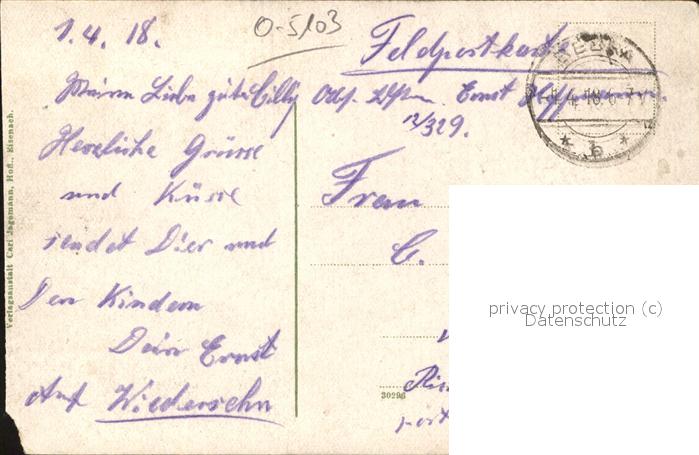 1.4.18.
O-5103
Feldpostkarte
Meine Liebe gute Cilly
Herzliche Grüsse
und Küsse
sendet Dier und
Den Kindern
Dein Ernst
Auf Wiedersehn
Ernst
12/329.
Frau
C.
Verlagsanstalt Carl Jagemann, Hofl., Eisenach.
30296
privacy protection (c)
Datenschutz